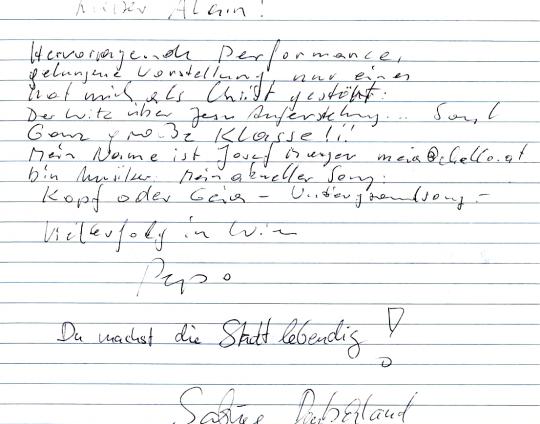 lieber Alain!
Hervorragende Performance,
gelungene Vorstellung, nur eines
hat mich als Christ gestört:
Der Witz über Jesu Auferstehung... Sonst
Ganz große Klasse!!!
Mein Name ist Josef
bin Musiker. Mein aktueller Song:
Kopf oder - Untergrundsong -
Viel Erfolg in Wien
Pepo
Du machst die Stadt lebendig!